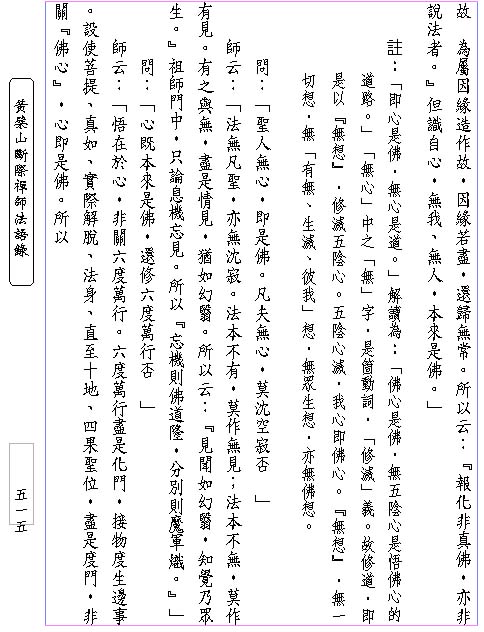 故　為屬因緣造作故，因緣若盡，還歸無常。所以云：『報化非真佛，亦非
說法者。』但識自心，無我、無人，本來是佛。」
註：「即心是佛，無心是道。」解讀為：「佛心是佛，無五陰心是悟佛心的
道路。」「無心」中之「無」字，是箇動詞，「修滅」義。故修道，即
是以『無想』，修滅五陰心。五陰心滅，我心即佛心。『無想』，無一
切想，無「有無、生滅、彼我」想，無眾生想，亦無佛想。
問：「聖人無心，即是佛。凡夫無心，莫沈空寂否　」
師云：「法無凡聖，亦無沈寂。法本不有，莫作無見；法本不無，莫作
有見。有之與無，盡是情見，猶如幻翳。所以云：『見聞如幻翳，知覺乃眾
生。』祖師門中，只論息機忘見。所以『忘機則佛道隆，分別則魔軍熾。』」
問：「心既本來是佛，還修六度萬行否　」
師云：「悟在於心，非關六度萬行。六度萬行盡是化門，接物度生邊事
。設使菩提、真如、實際解脫、法身、直至十地、四果聖位，盡是度門，非
關『佛心』，心即是佛。所以
黃檗山斷際禪師法語錄
五一五